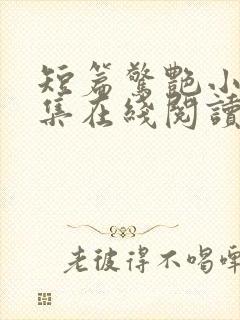 短篇驚艷小
集在綫閱讀
老彼得不喝啤